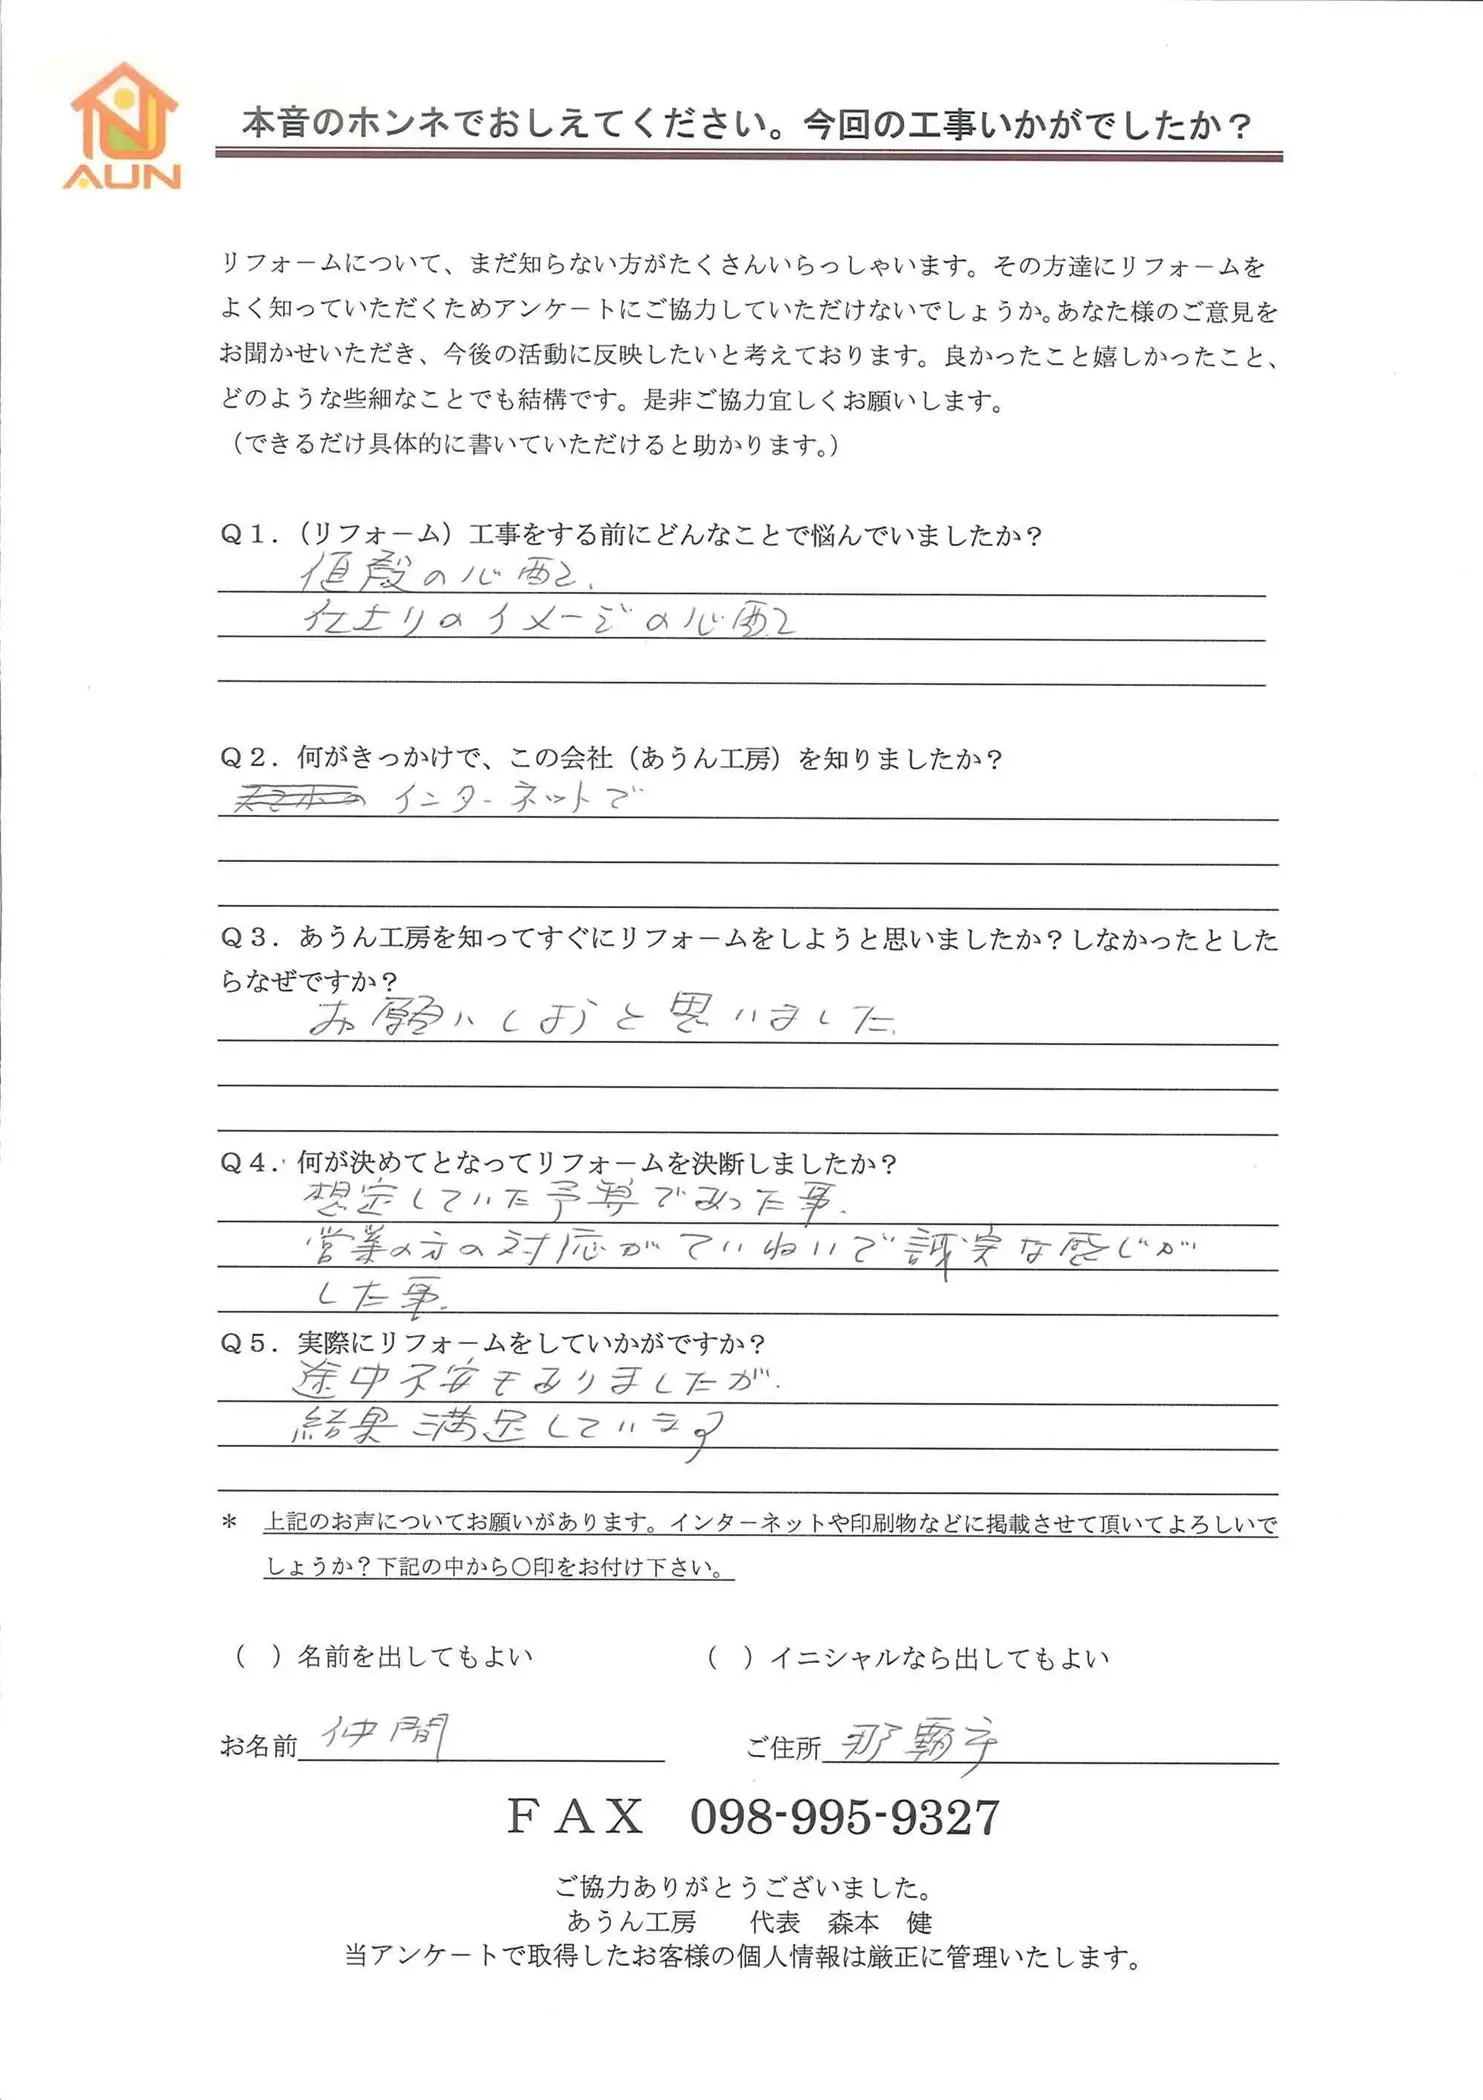 AUN
本音のホンネでおしえてください。今回の工事いかがでしたか？
リフォームについて、まだ知らない方がたくさんいらっしゃいます。その方達にリフォームを
よく知っていただくためアンケートにご協力していただけないでしょうか。あなた様のご意見を
お聞かせいただき、今後の活動に反映したいと考えております。良かったこと嬉しかったこと、
どのような些細なことでも結構です。是非ご協力宜しくお願いします。
（できるだけ具体的に書いていただけると助かります。）
Ｑ１．（リフォーム）工事をする前にどんなことで悩んでいましたか？
値段の心配。
仕上りのイメージの心配
Ｑ２．何がきっかけで、この会社（あうん工房）を知りましたか？
インターネットで
Ｑ３．あうん工房を知ってすぐにリフォームをしようと思いましたか？しなかったとした
らなぜですか？
お願いしようと思いました。
Ｑ４．何が決めてとなってリフォームを決断しましたか？
想定していた予算であった事。
営業の方の対応がていねいで誠実な感じが
した事。
Ｑ５．実際にリフォームをしていかがですか？
途中不安もありましたが、
結果満足しています
＊　上記のお声についてお願いがあります。インターネットや印刷物などに掲載させて頂いてよろしいで
しょうか？下記の中から〇印をお付け下さい。
（　）名前を出してもよい　（　）イニシャルなら出してもよい
お名前 仲間　ご住所 那覇市
ＦＡＸ　098-995-9327
ご協力ありがとうございました。
あうん工房　代表　森本　健
当アンケートで取得したお客様の個人情報は厳正に管理いたします。